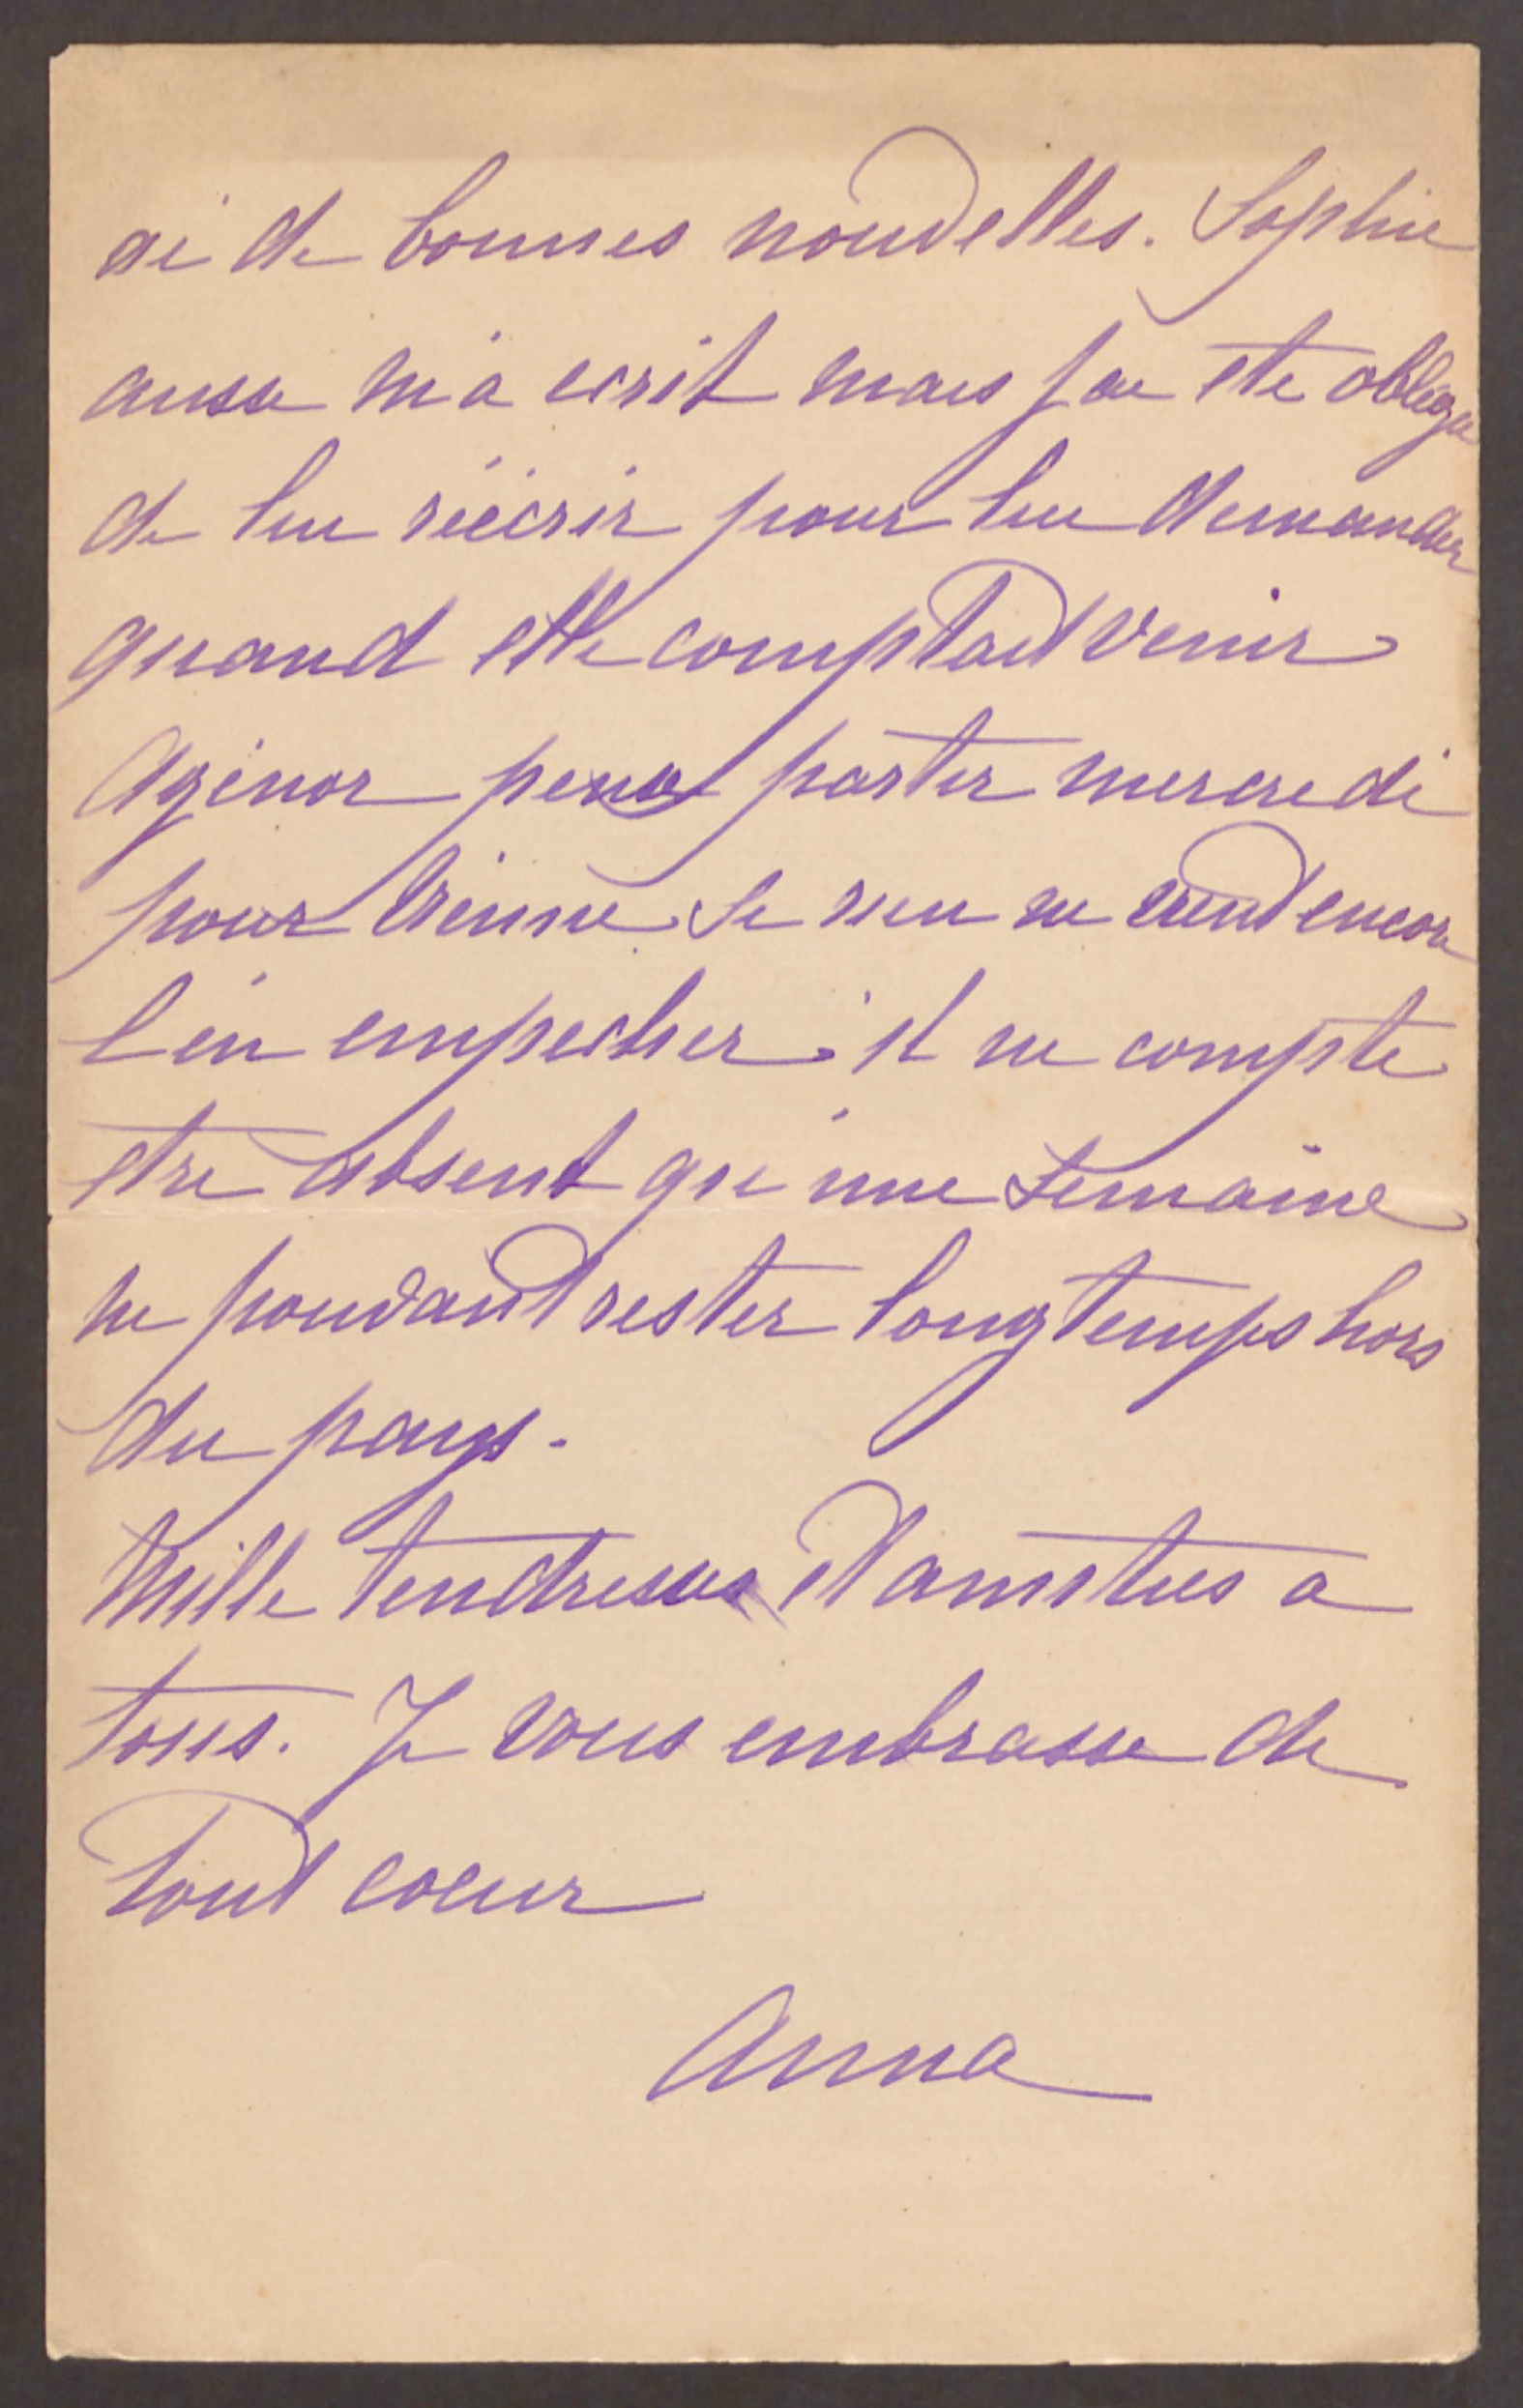 ai de bonnes nouvelles. Sophie
aussi m'a ecrit mais j'ai ete obligée
de lui réécrir pour lui demander
quand elle comptait venir
Agénor pense partir mercredi
pour Vienne si rien ne vient encore
l'en empecher; il ne compte
etre absent qu'une semaine
ne pouvant rester longtemps hors
du pays.
Mille tendresses et amitiés a
tous. Je vous embrasse de
tout coeur
Anna